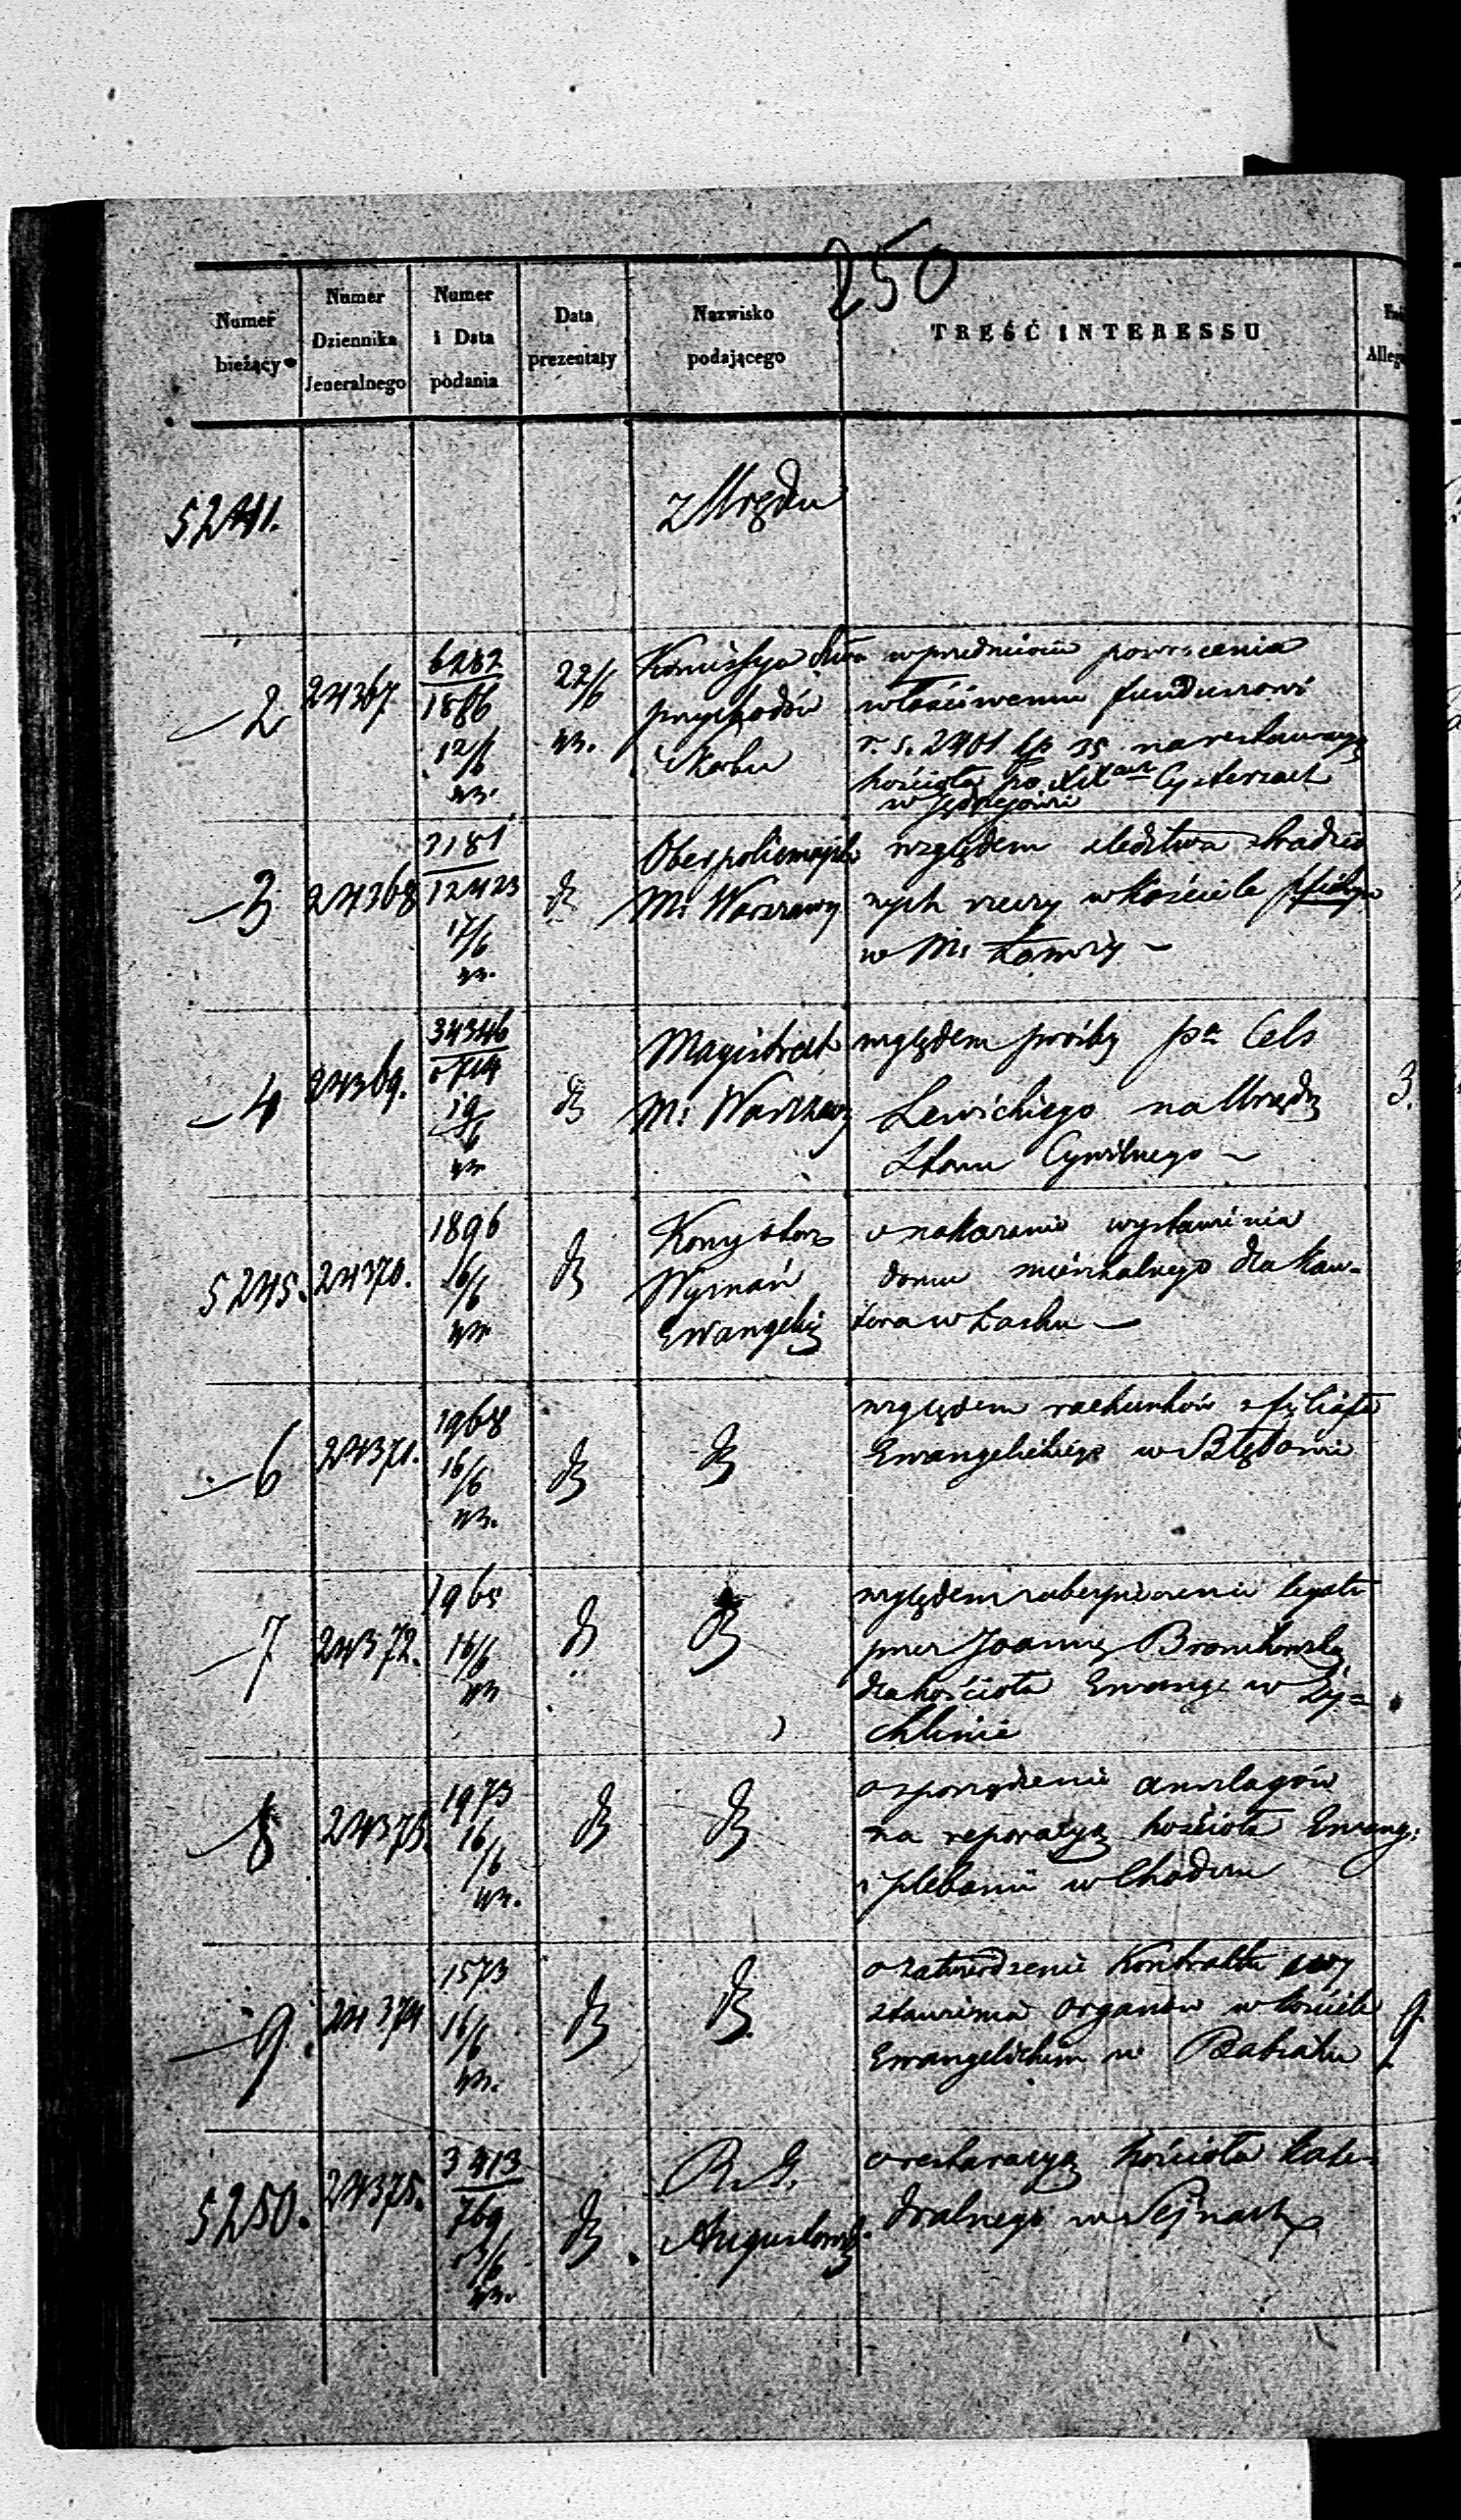 250
Numer bieżący
Numer Dziennika Jeneralnego
Numer i Data podania
Data prezentaty
Nazwisko podającego
TREŚĆ INTERESSU
5241.
z Urzędu
2
24367
6282
1886
12/6
43.
22/6
43.
Komissya
przychodów
Skarbu
w przedmiocie powrócenia
właściwemu funduszowi
r. s. 2401 kp 35 na restauracyę
kościoła po Cystersach
w Jędrzejowie
3
24368
2181
12423
17/6
43.
Oberpolicmajster
M. Warszawy
względem śledztwa skradzio
nych rzeczy w kościele
w M. Łomży
4
24369.
34346
19/6
43
Magistrat
M. Warszawy
względem prośby Cels
Lewickiego na Urzędn
Stanu Cywilnego
3.
5245.
24370.
1896
16/6
43.
Konsystorz
Wyznań
Ewangelic
o nakazanie wystawienia
domu mieszkalnego dla Kan-
tora w Łasku
6
24371.
1968
16/6
43.
względem rachunków z filiału
Ewangelickiego w Błędowie
7
24372.
1965
16/6
43
względem zabezpieczenia legatu
przez Joannę Bronikowską
dla kościoła Ewang. w Ży=
chlinie
8
24373.
1973
16/6
43.
o sporządzenie anszlagów
na reparacyą kościoła Ewang:
i plebanii w Chodczu
9.
24374
1573
16/6
43.
o zatwierdzenie Kontraktu wy
stawienia organów w kościele
Ewangelickim w Babiaku
9.
5250.
24375.
3413
769
43.
R. G.
Augustowski
o restauracyą kościoła Kate-
dralnego w Sejnach